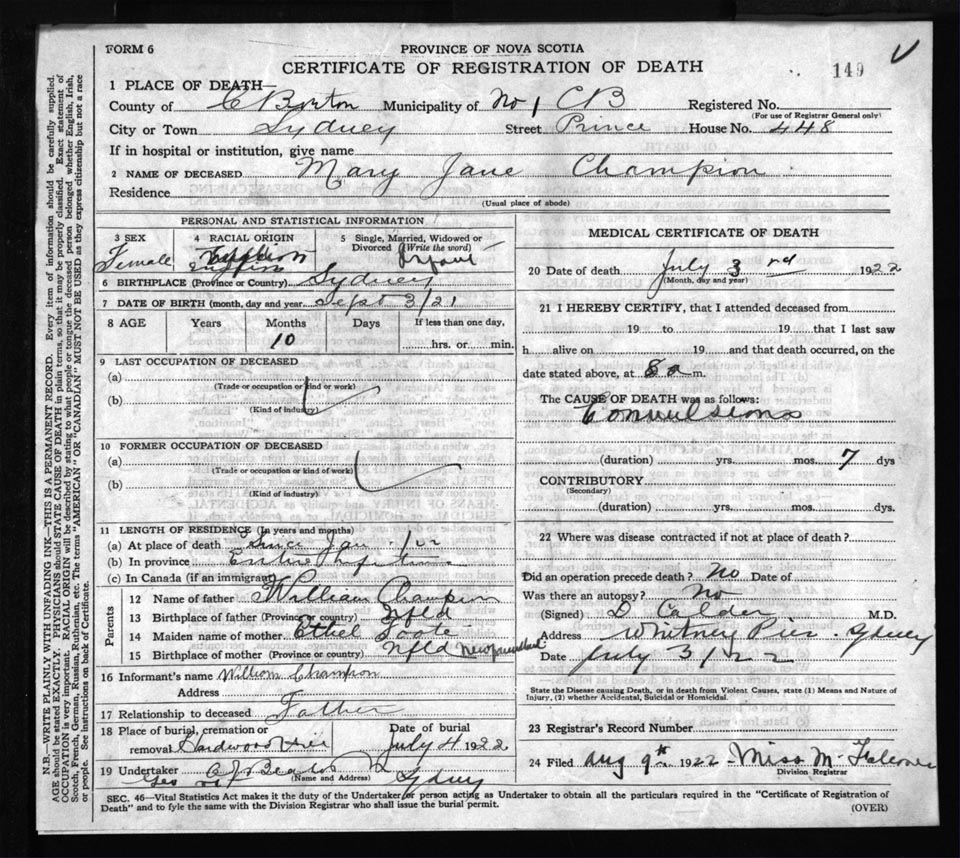 FORM 6
PROVINCE OF NOVA SCOTIA
CERTIFICATE OF REGISTRATION OF DEATH
149
1 PLACE OF DEATH—
County of C Breton Municipality of No 1 CB Registered No.
(For use of Registrar General only)
City or Town Sydney Street Prince House No. 448
If in hospital or institution, give name
2 NAME OF DECEASED Mary Jane Champion
Residence
(Usual place of abode)
PERSONAL AND STATISTICAL INFORMATION
3 SEX 4 RACIAL ORIGIN 5 Single, Married, Widowed or Divorced (Write the word)
Female English Infant
6 BIRTHPLACE (Province or Country) Sydney
7 DATE OF BIRTH (month, day and year) Sept 3/21
8 AGE Years Months Days If less than one day,
10 hrs. or min.
9 LAST OCCUPATION OF DECEASED
(a)
(Trade or occupation or kind or work)
(b)
(Kind of industry)
10 FORMER OCCUPATION OF DECEASED
(a)
(Trade or occupation or kind of work)
(b)
(Kind of industry)
11 LENGTH OF RESIDENCE (In years and months)
(a) At place of death Since Jan 1/22
(b) In province Entire life time
(c) In Canada (if an immigrant)
Parents
12 Name of father William Champion
13 Birthplace of father (Province or country) Nfld
14 Maiden name of mother Ethel Foote
15 Birthplace of mother (Province or country) Nfld Newfoundland
16 Informant's name William Champion
Address
17 Relationship to deceased Father
18 Place of burial, cremation or removal Hardwood Hill Date of burial July 4 1922
19 Undertaker (Name and Address) Sydney
MEDICAL CERTIFICATE OF DEATH
20 Date of death July 3rd 1922
(Month, day and year)
21 I HEREBY CERTIFY, that I attended deceased from
19 to 19 that I last saw
h alive on 19 and that death occurred, on the
date stated above, at 8 a m.
The CAUSE OF DEATH was as follows:
Convulsions
(duration) yrs. mos. 7 dys
CONTRIBUTORY
(Secondary)
(duration) yrs. mos. dys.
22 Where was disease contracted if not at place of death?
Did an operation precede death? No Date of
Was there an autopsy? No
(Signed) D Calder M.D.
Address Whitney Pier. Sydney
Date July 3/22
State the Disease causing Death, or in death from Violent Causes, state (1) Means and Nature of
Injury, (2) whether Accidental, Suicidal or Homicidal.
23 Registrar's Record Number
24 Filed Aug 9th 1922 Miss M
Division Registrar
SEC. 46—Vital Statistics Act makes it the duty of the Undertaker or person acting as Undertaker to obtain all the particulars required in the "Certificate of Registration of
Death" and to fyle the same with the Division Registrar who shall issue the burial permit.
(OVER)
N.B.—WRITE PLAINLY WITH UNFADING INK—THIS IS A PERMANENT RECORD. Every item of information should be carefully supplied.
AGE should be stated EXACTLY. PHYSICIANS should STATE CAUSE OF DEATH in plain terms, so that it may be properly classified. Exact statement of
OCCUPATION is very important. RACIAL ORIGIN will be described by stating to what people or tongue the deceased person belonged whether English, Irish,
Scotch, French, German, Russian, Ruthenian, etc. The terms "AMERICAN" OR "CANADIAN" MUST NOT BE USED as they express citizenship but not a race
or people. See instructions on back of Certificate.